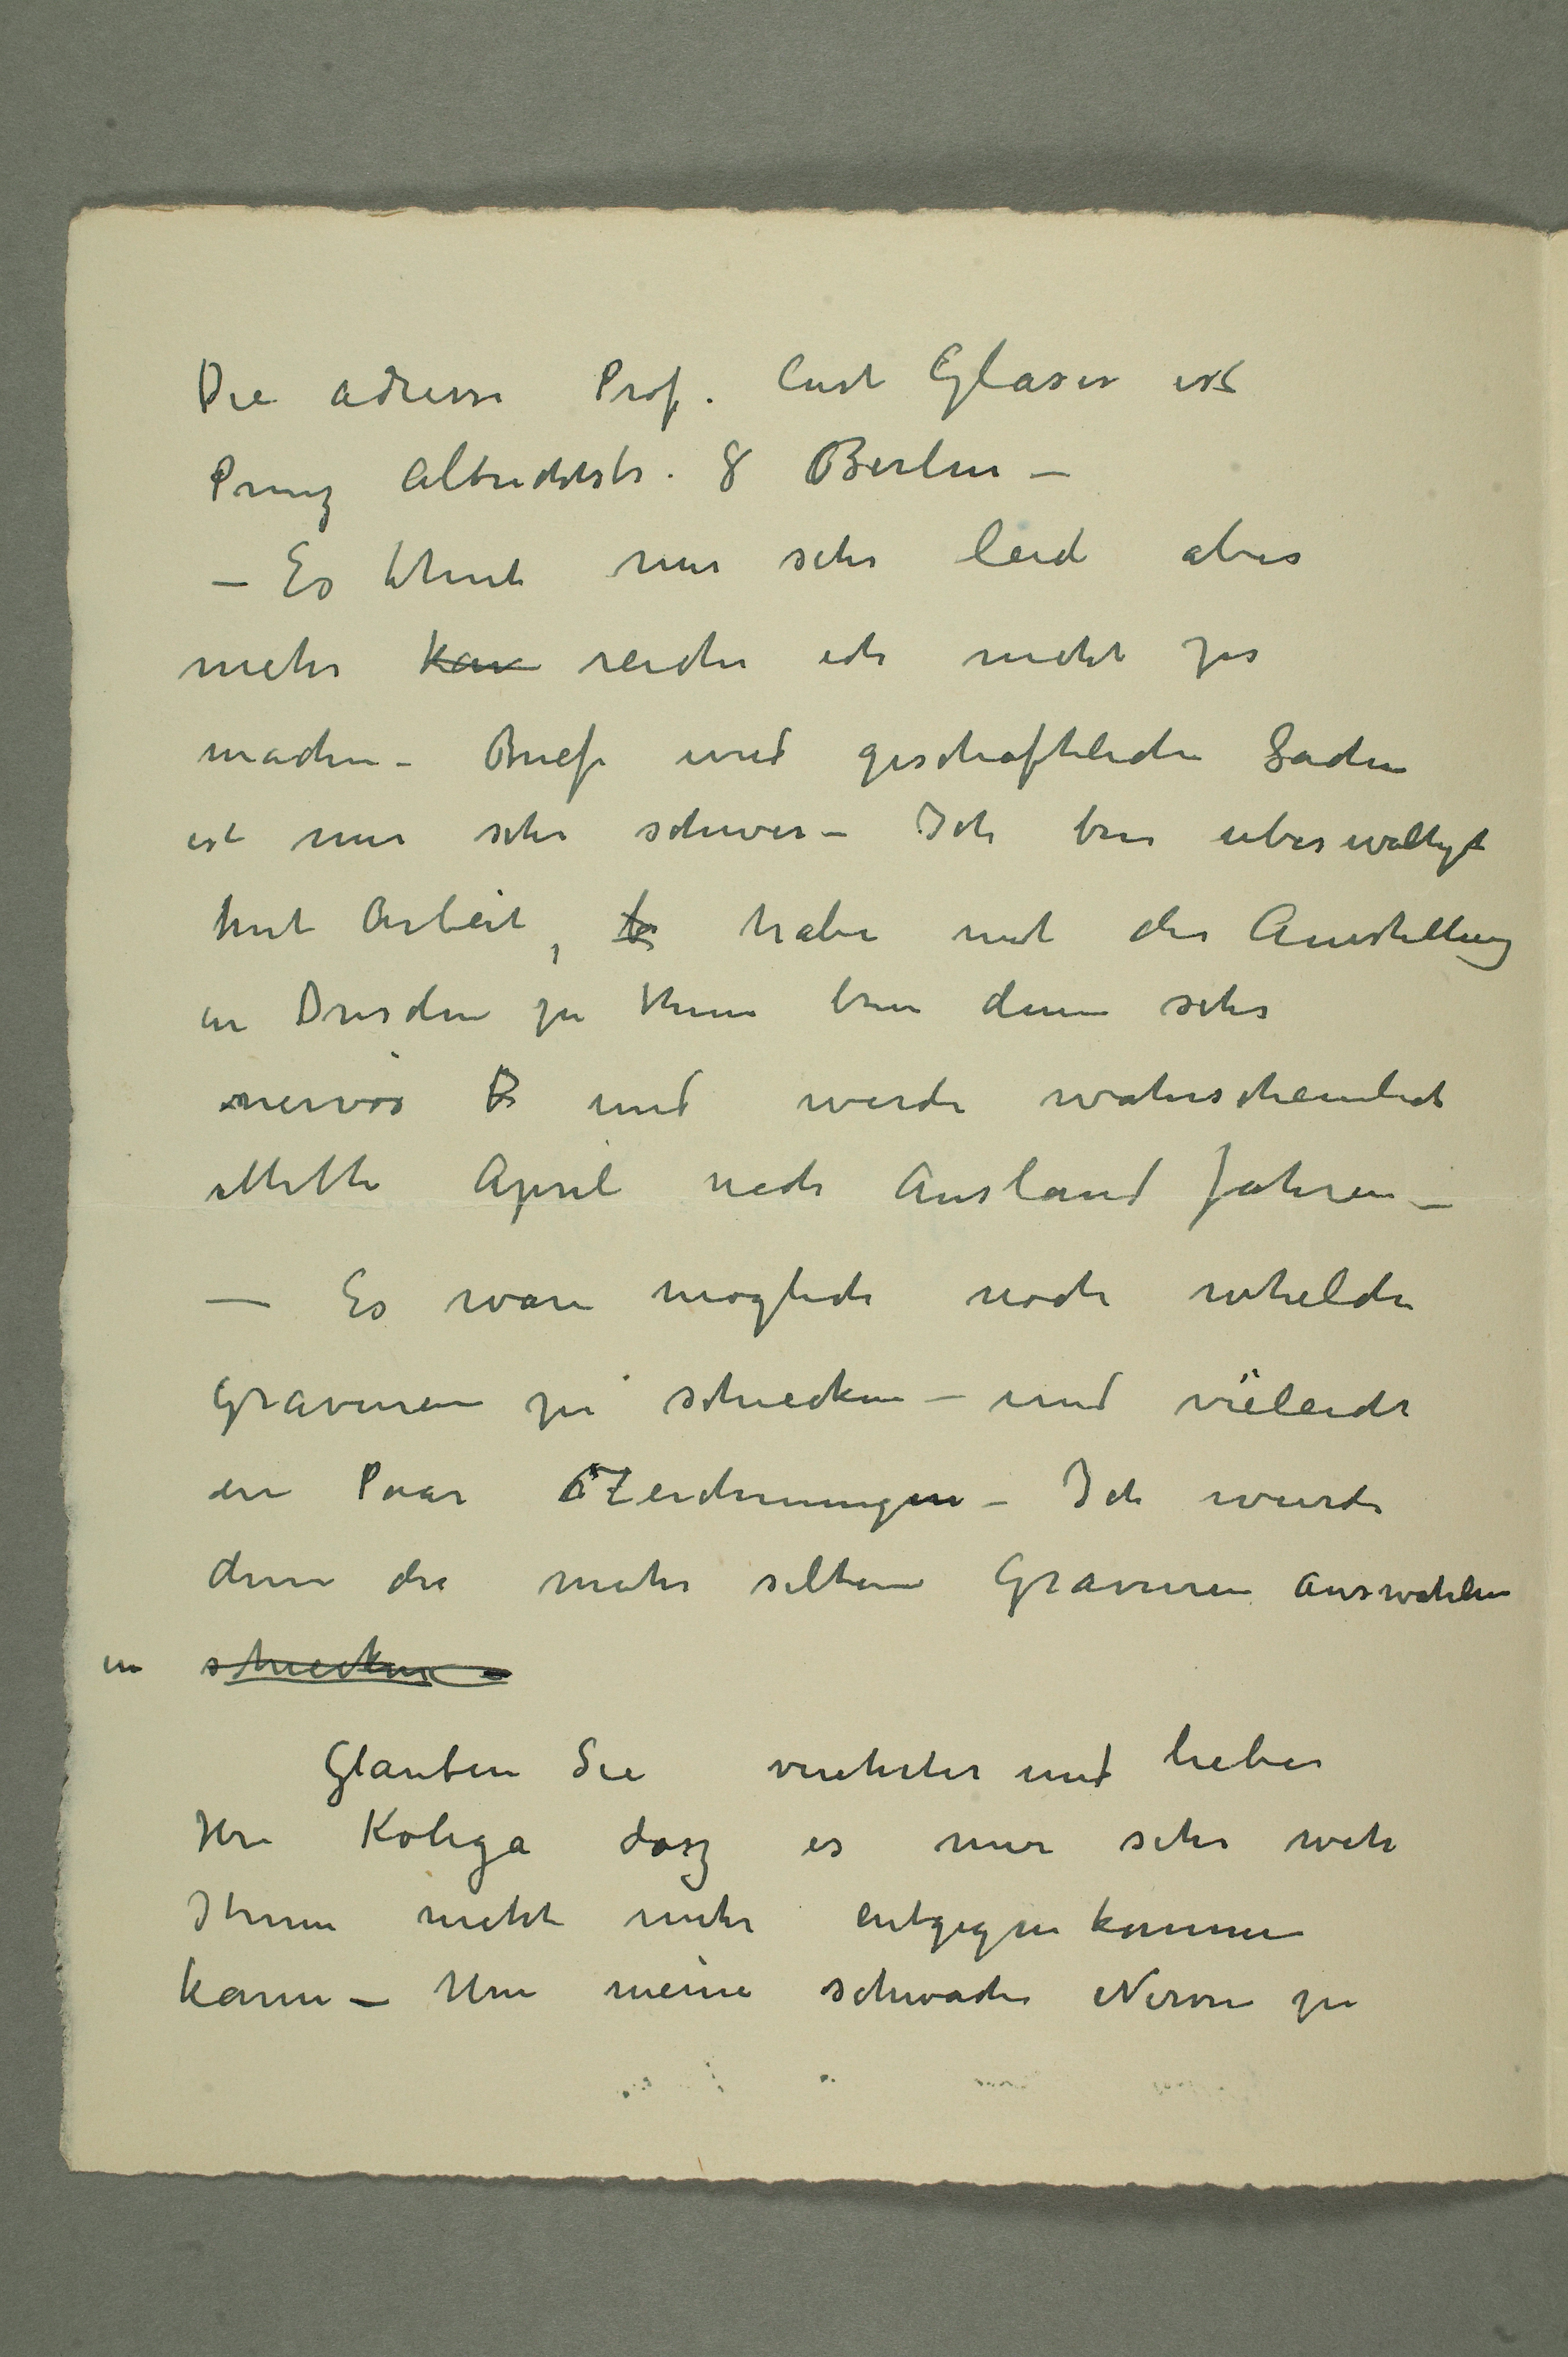 Die adresse Prof. Curt Glaser ist
Prinz Albrechtstr. 8 Berlin –
– Es thut mir sehr leid aber
mehr kan reiche ich nicht zu
machen – Briefe und geschaftliche Sachen
ist mir sehr schwer – Ich bin uberwaltigt
mit Arbeit, habe mit der Ausstellung
in Dresden zu thun bin denn sehr
nervös und werde wahrscheinlich
Mitte April nach Ausland fahren –
– Es ware moglich noch whelche
Gravuren zu schicken – und vieleicht
ein Paar Zeichnungen – Ich wurde
denn die mehr seltene Gravuren auswahlen
en schicken –
Glauben Sie verehrter und lieber
Herr Kolega dasz es mir sehr weh
Ihnen nicht mehr entgegen kommen
kann – Um meine schwache Nerven zu